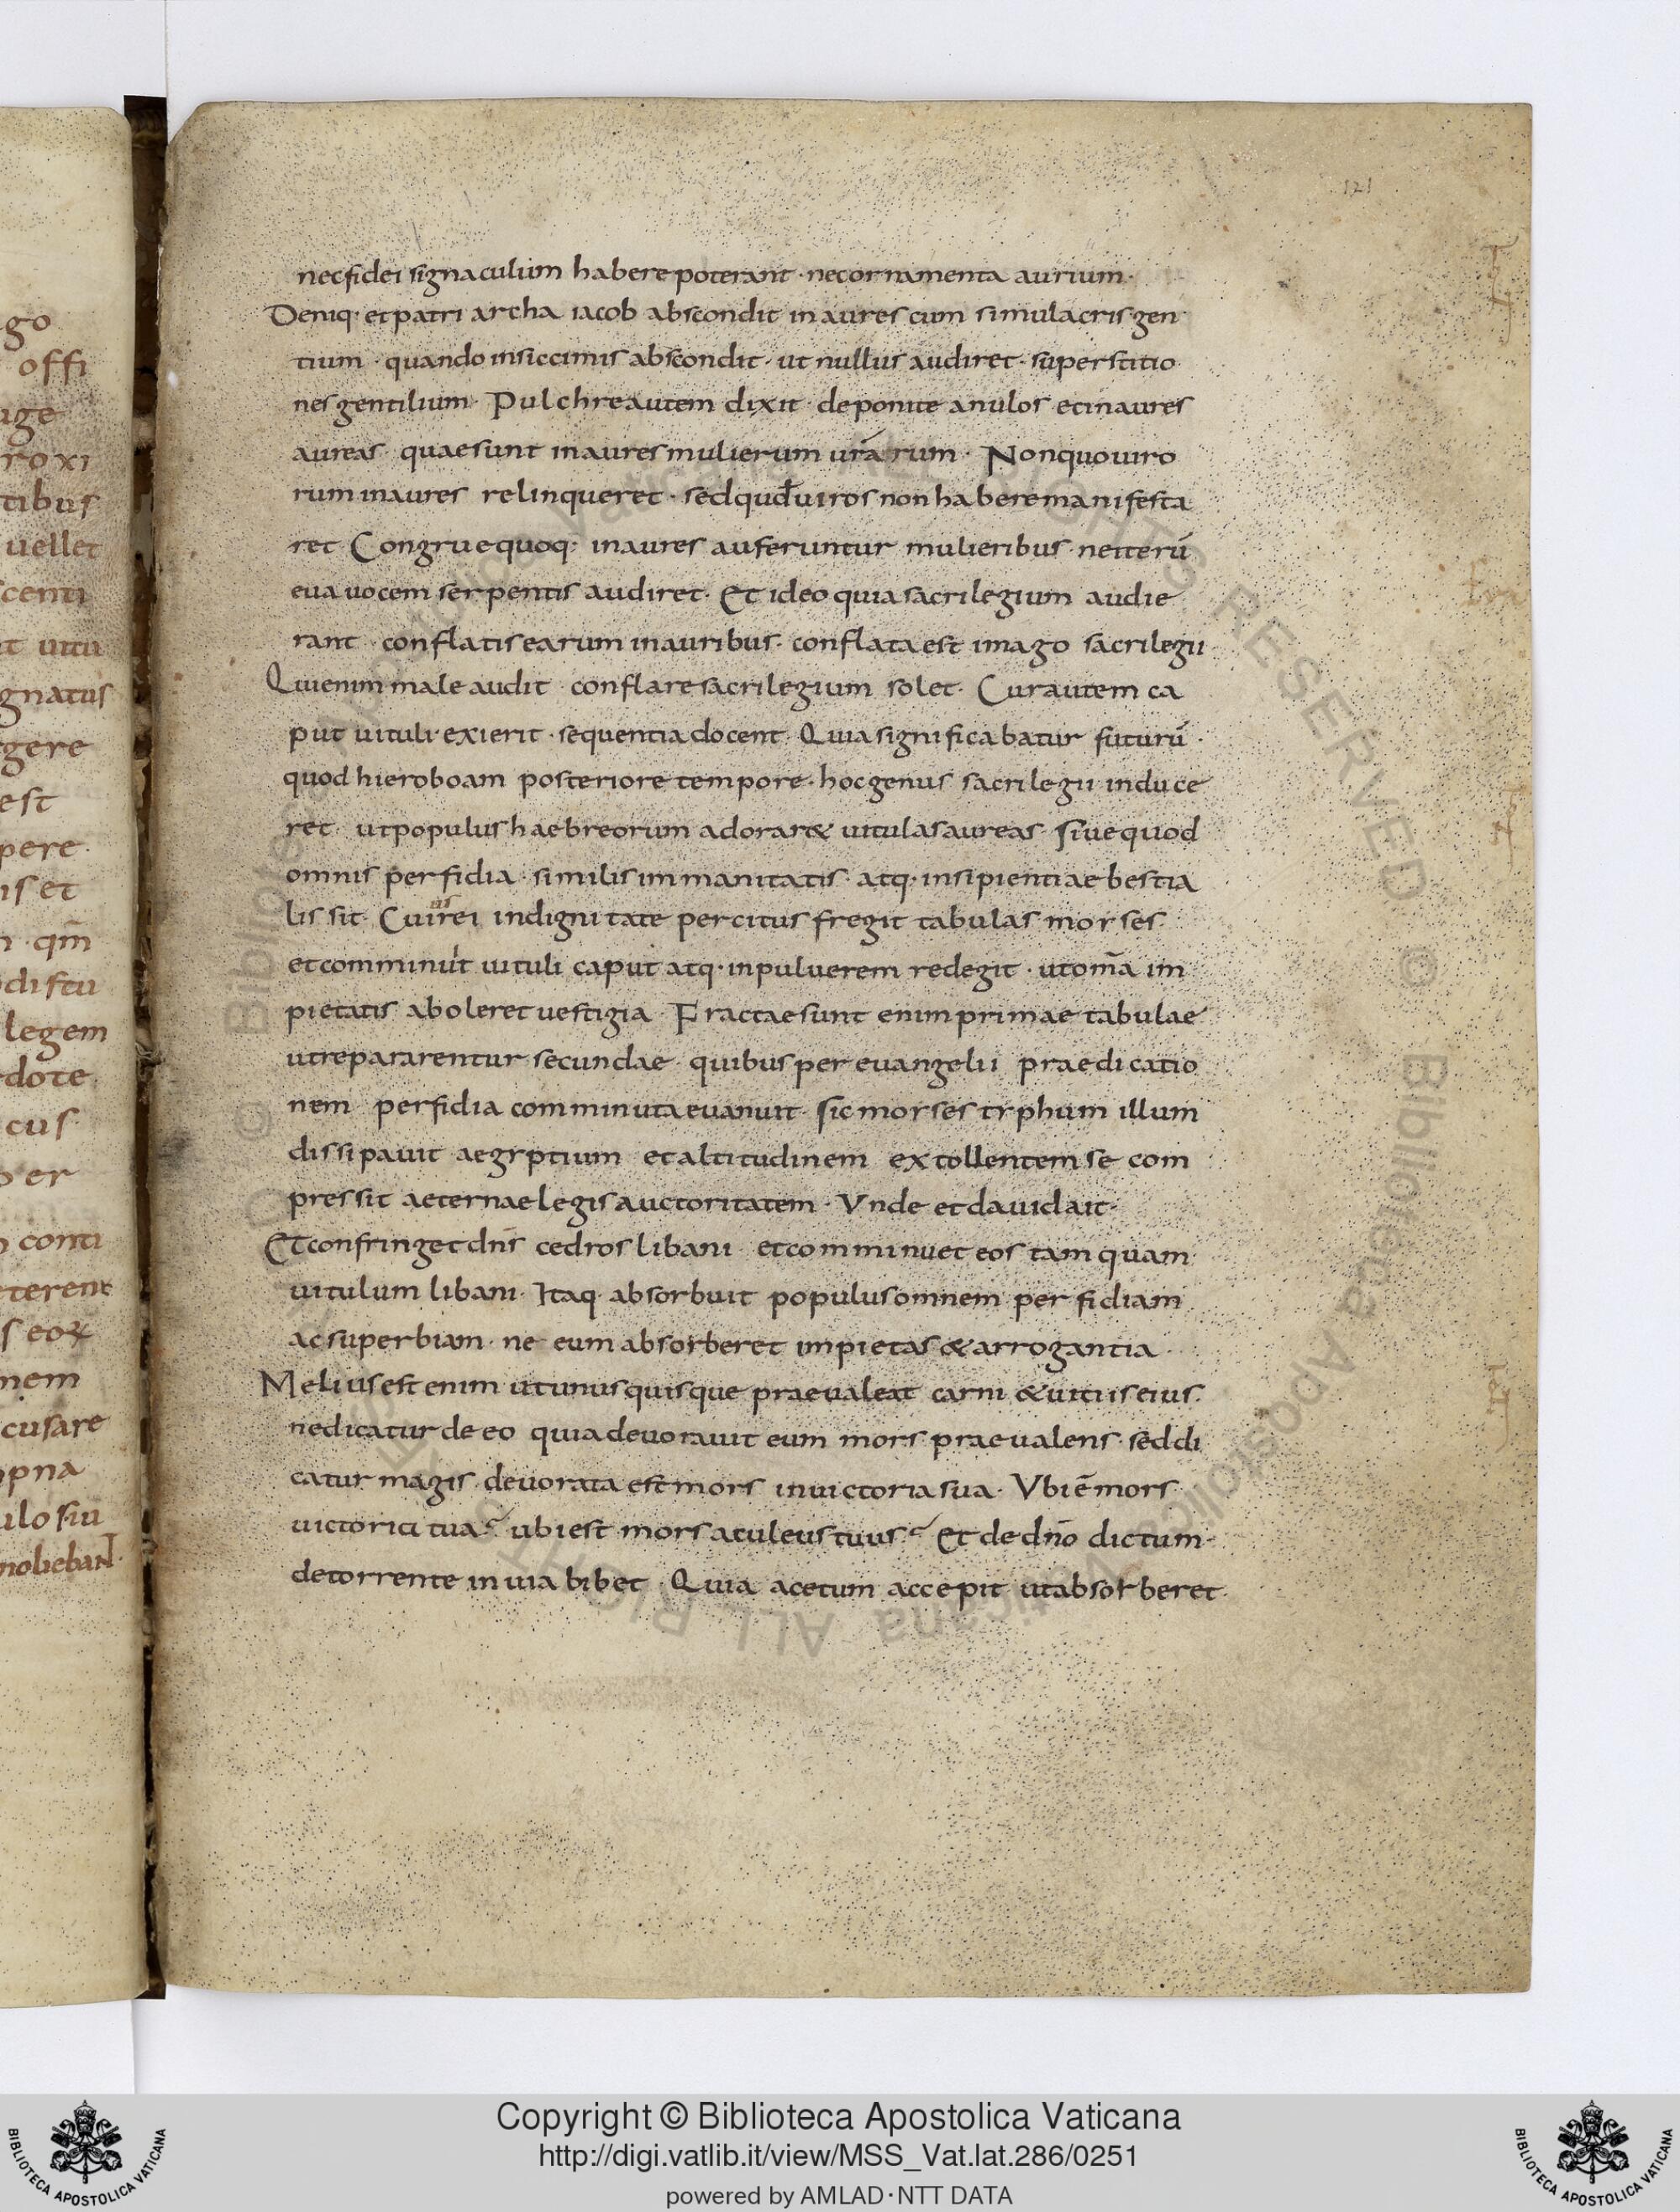 121
go
offi
age
roxi
tibus
uellet
centi
t uitu
gnatus
gere
est
pere
is et
qm̄
distu
legem
dote
cus
er
conti
terent
s eoꝝ
nem
cusare
pna
ulo siu
moliebant
nec fidei signaculum habere poterant · nec ornamenta aurium ·
Deniq· et patriarcha iacob abscondit inaures cum simulacris gen
tium · quando in siccimis abscondit · ut nullus audiret · superstitio
nes gentilium · Pulchre autem dixit · deponite anulos · et inaures
aureas · quae sunt in aures mulierum urarum · Non quo uiro
rum inaures relinqueret · sed qud uiros non habere manifesta
ret Congrue quoq· inaures auferuntur mulieribus · ne iterū
eua uocem serpentis audiret · Et ideo quia sacrilegium audie
rant · conflatis earum inauribus · conflata est imago sacrilegii ·
Qui enim male audit · conflare sacrilegium solet · Cur autem ca
put uituli exierit · sequentia docent · Quia significabatur futurū ·
quod hieroboam posteriore tempore · hoc genus sacrilegii induce
ret · ut populus haebreorum adorar& uitulas aureas · siue quod
omnis perfidia · similis immanitatis · atq· insipientiae bestia
lis sit · Cuius rei indignitate percitus fregit tabulas moyses ·
et comminuit uituli caput atq· in puluerem redegit · ut om̄a im
pietatis aboleret uestigia · Fractae sunt enim primae tabulae
ut repararentur secundae · quibus per euangelii praedicatio
nem perfidia comminuta euanuit · sic moyses typhum illum
dissipauit aegyptium et altitudinem extollentem se com
pressit aeternae legis auctoritatem · Vnde et dauid ait ·
Et confringet dn̄s cedros libani · et comminuet eos tamquam
uitulum libani · Itaq· absorbuit populus omnem perfidiam
ac superbiam · ne eum absorberet impietas & arrogantia ·
Melius est enim ut unusquisque praeualeat carni & uitiis eius ·
ne dicatur de eo quia deuorauit eum mors praeualens · sed di
catur magis · deuorata est mors in uictoria sua · Vbi ē mors
uictoria tua? ubi est mors aculeus tuus? Et de dn̄o dictum ·
de torrente in uia bibet · Quia acetum accepit ut absorberet ·
Copyright © Biblioteca Apostolica Vaticana
http://digi.vatlib.it/view/MSS_Vat.lat.286/0251
powered by AMLAD·NTT DATA
BIBLIOTECA APOSTOLICA VATICANA
BIBLIOTECA APOSTOLICA VATICANA